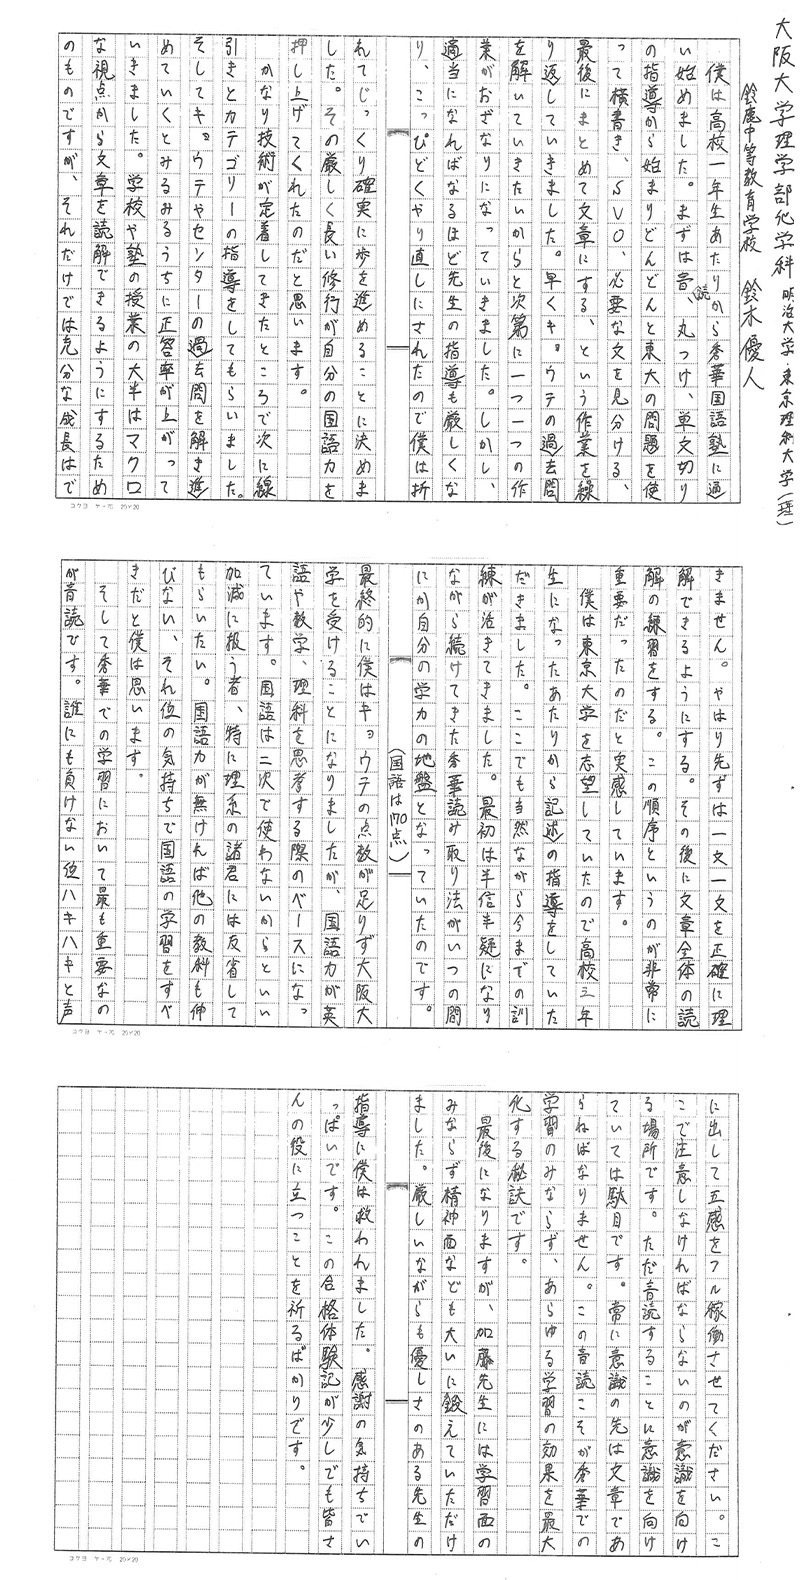 大阪大学理学部化学科 明治大学 東京理科大学（理）
鈴鹿中等教育学校 鈴木優人
僕は高校一年生あたりから秀華国語塾に通
い始めました。まずは音読、丸つけ、単文切り
の指導から始まりどんどんと東大の問題を使
って横書き、SVO、必要な文を見分ける、
最後にまとめて文章にする、という作業を繰
り返していきました。早くキョウテの過去問
を解いていきたいからと次第に一つ一つの作
業がおざなりになっていきました。しかし、
適当になればなるほど先生の指導も厳しくな
り、こっぴどくやり直しにされたので僕は折
れてじっくり確実に歩を進めることに決めま
した。その厳しく長い修行が自分の国語力を
押し上げてくれたのだと思います。
かなり技術が定着してきたところで次に線
引きとカテゴリーの指導をしてもらいました。
そしてキョウテやセンターの過去問を解き進
めていくとみるみるうちに正答率が上がって
いきました。学校や塾の授業の大半はマクロ
な視点から文章を読解できるようにするため
のものですが、それだけでは充分な成長はで
コクヨ ケ-70 20×20
きません。やはり先ずは一文一文を正確に理
解できるようにする。その後に文章全体の読
解の練習をする。この順序というのが非常に
重要だったのだと実感しています。
僕は東京大学を志望していたので高校三年
生になったあたりから記述の指導をしていた
だきました。ここでも当然ながら今までの訓
練が活きてきました。最初は半信半疑になり
ながら続けてきた秀華読み取り法がいつの間
にか自分の学力の地盤となっていたのです。
（国語は170点）
最終的に僕はキョウテの点数が足りず大阪大
学を受けることになりましたが、国語力が英
語や数学、理科を思考する際のベースになっ
ています。国語は二次で使わないからといい
加減に扱う者、特に理系の諸君には反省して
もらいたい。国語力が無ければ他の教科も伸
びない、それ位の気持ちで国語の学習をすべ
きだと僕は思います。
そして秀華での学習において最も重要なの
が音読です。誰にも負けない位ハキハキと声
コクヨ ケ-70 20×20
に出して五感をフル稼働させてください。こ
こで注意しなければならないのが意識を向け
る場所です。ただ音読することに意識を向け
ていては駄目です。常に意識の先は文章であ
らねばなりません。この音読こそが秀華での
学習のみならず、あらゆる学習の効果を最大
化する秘訣です。
最後になりますが、加藤先生には学習面の
みならず精神面なども大いに鍛えていただけ
ました。厳しいながらも優しさのある先生の
指導に僕は救われました。感謝の気持ちでい
っぱいです。この合格体験記が少しでも皆さ
んの役に立つことを祈るばかりです。
コクヨ ケ-70 20×20